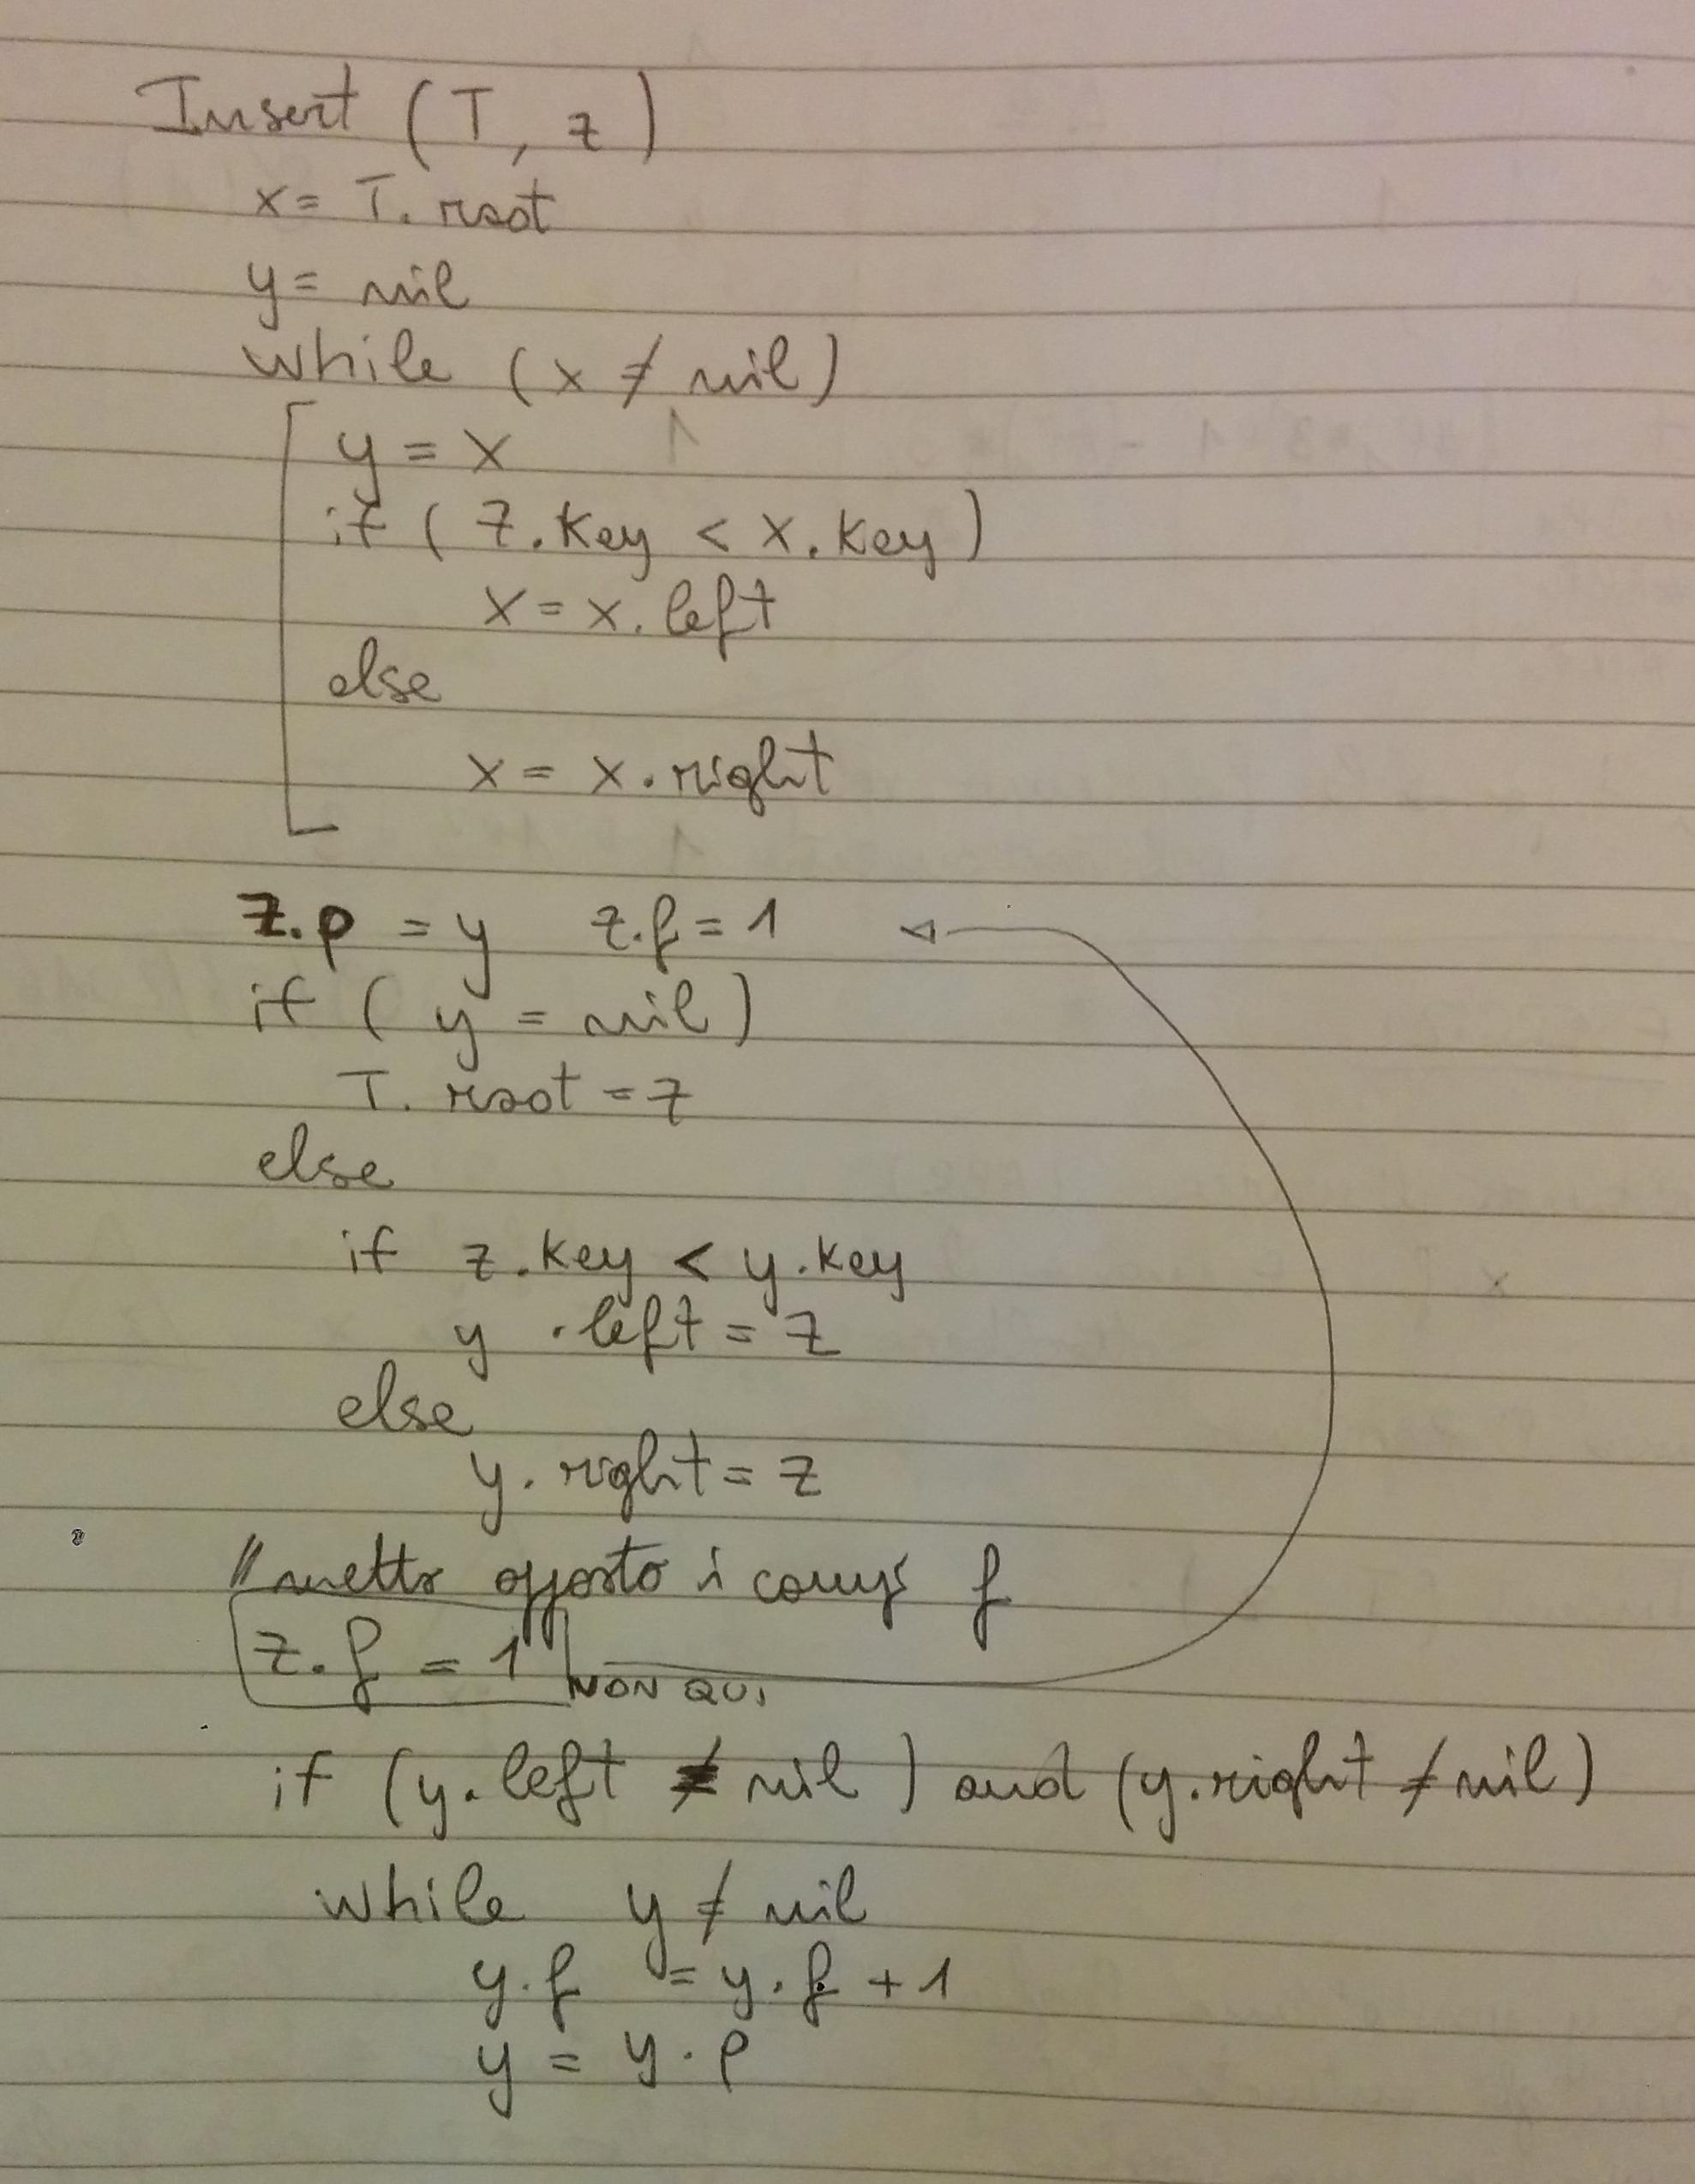 Insert (T, z)
x = T. root
y = nil
while (x ≠ nil)
y = x
if ( z.key < x.key)
x = x.left
else
x = x.right
z.p = y z.f = 1
if ( y = nil)
T. root = z
else
if z.key < y.key
y .left = z
else
y.right = z
// metto apposto i campi f
z.f = 1 NON QUI
if (y.left ≠ nil ) and (y.right ≠ nil)
while y ≠ nil
y.f = y.f + 1
y = y.p